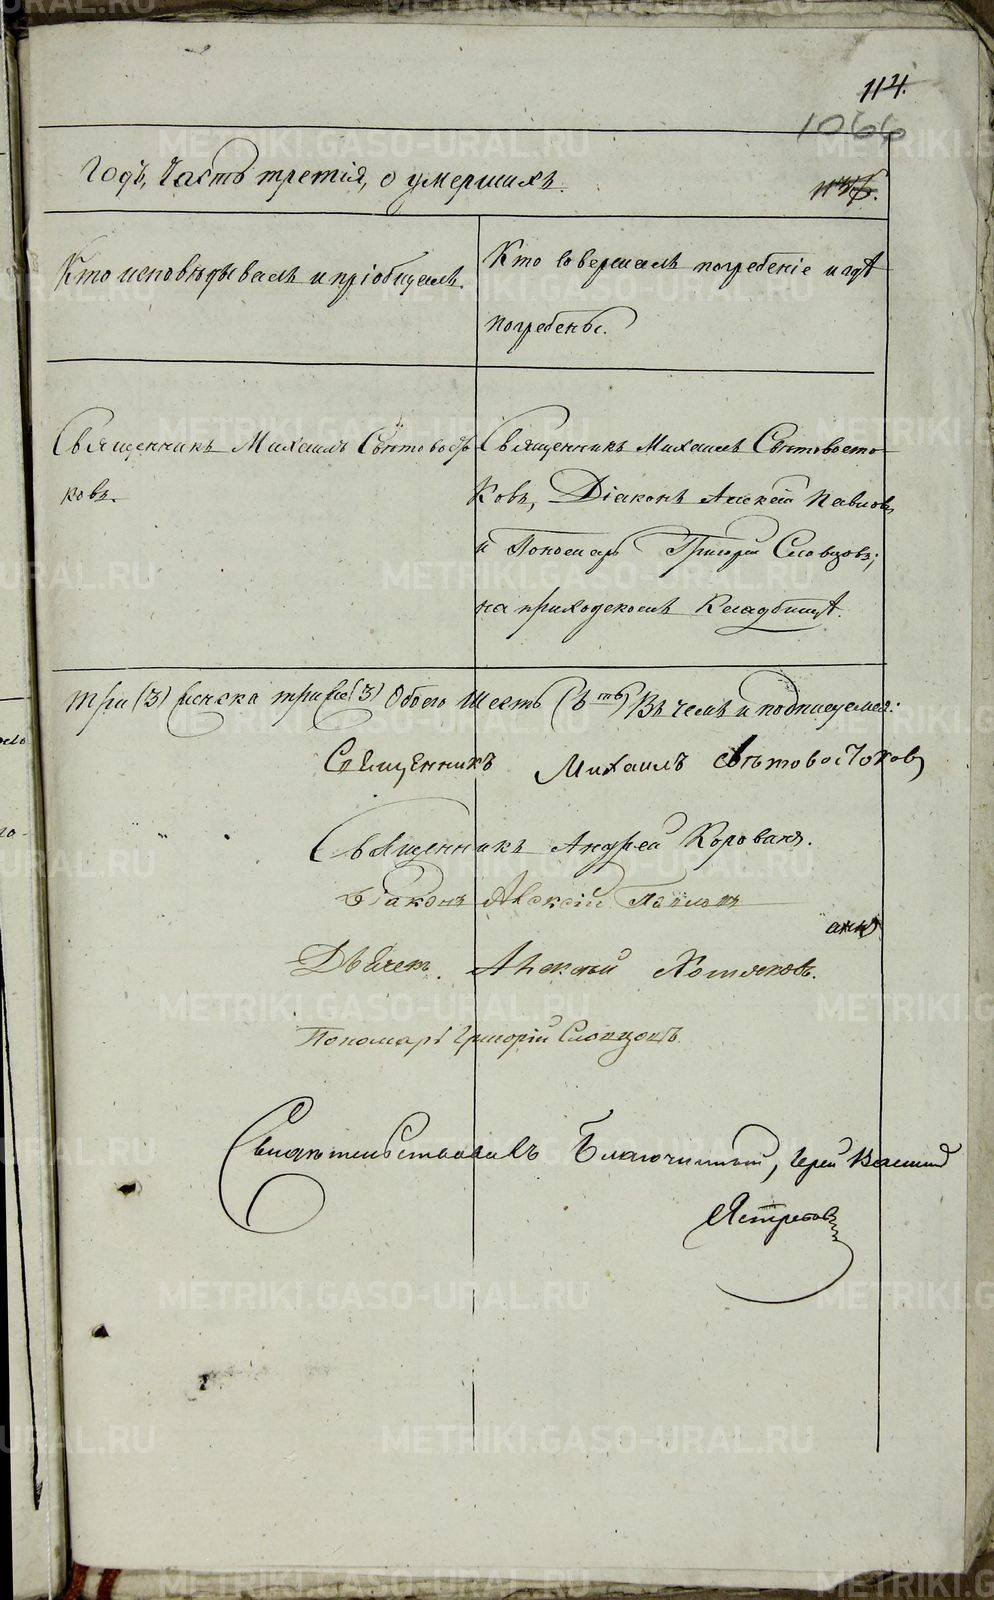 114.
1066
годъ, Часть третія, о умершихъ.
Кто исповѣдывалъ и пріобщалъ.
Кто совершалъ погребеніе и гдѣ
погребены.
Священникъ Михаилъ Свѣтовосто-
ковъ.
Священникъ Михаилъ Свѣтовосто-
ковъ, Діаконъ Алексѣй Павловъ,
и Пономарь Григорій Словцовъ;
на приходскомъ Кладбищѣ.
три (3) женска три (3) Обоего шесть (6ть) Въ чемъ и подписуемся:
Священникъ Михаилъ Свѣтовостоковъ
Священникъ Андрей Корована.
Діаконъ Алексій Павловъ
Дьячекъ Алексѣй Хотяковъ.
Пономарь Григорій Словцовъ
Свидѣтельствовалъ Благочинный, Іерей Василій
Ястребовъ
METRIKI.GASO-URAL.RU